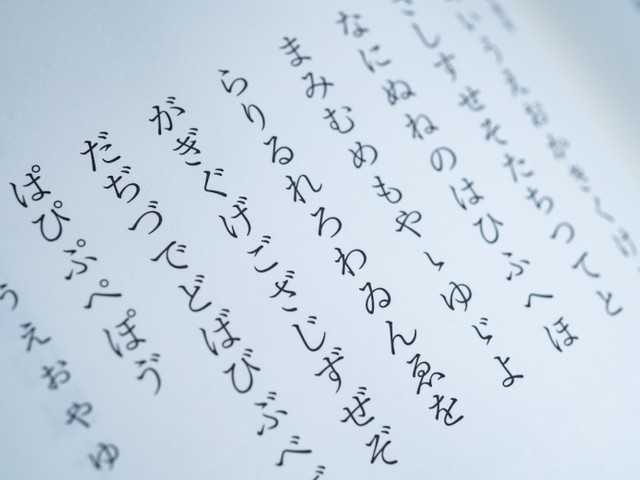 いうえおかきくけ
さしすせそたちつてと
なにぬねのはひふへほ
まみむめもやゝゆゞよ
らりるれろわゐんゑを
がぎぐげござじずぜぞ
だぢづでどばびぶべ
ぱぴぷぺぽゔ
ぅぇぉゃゅ